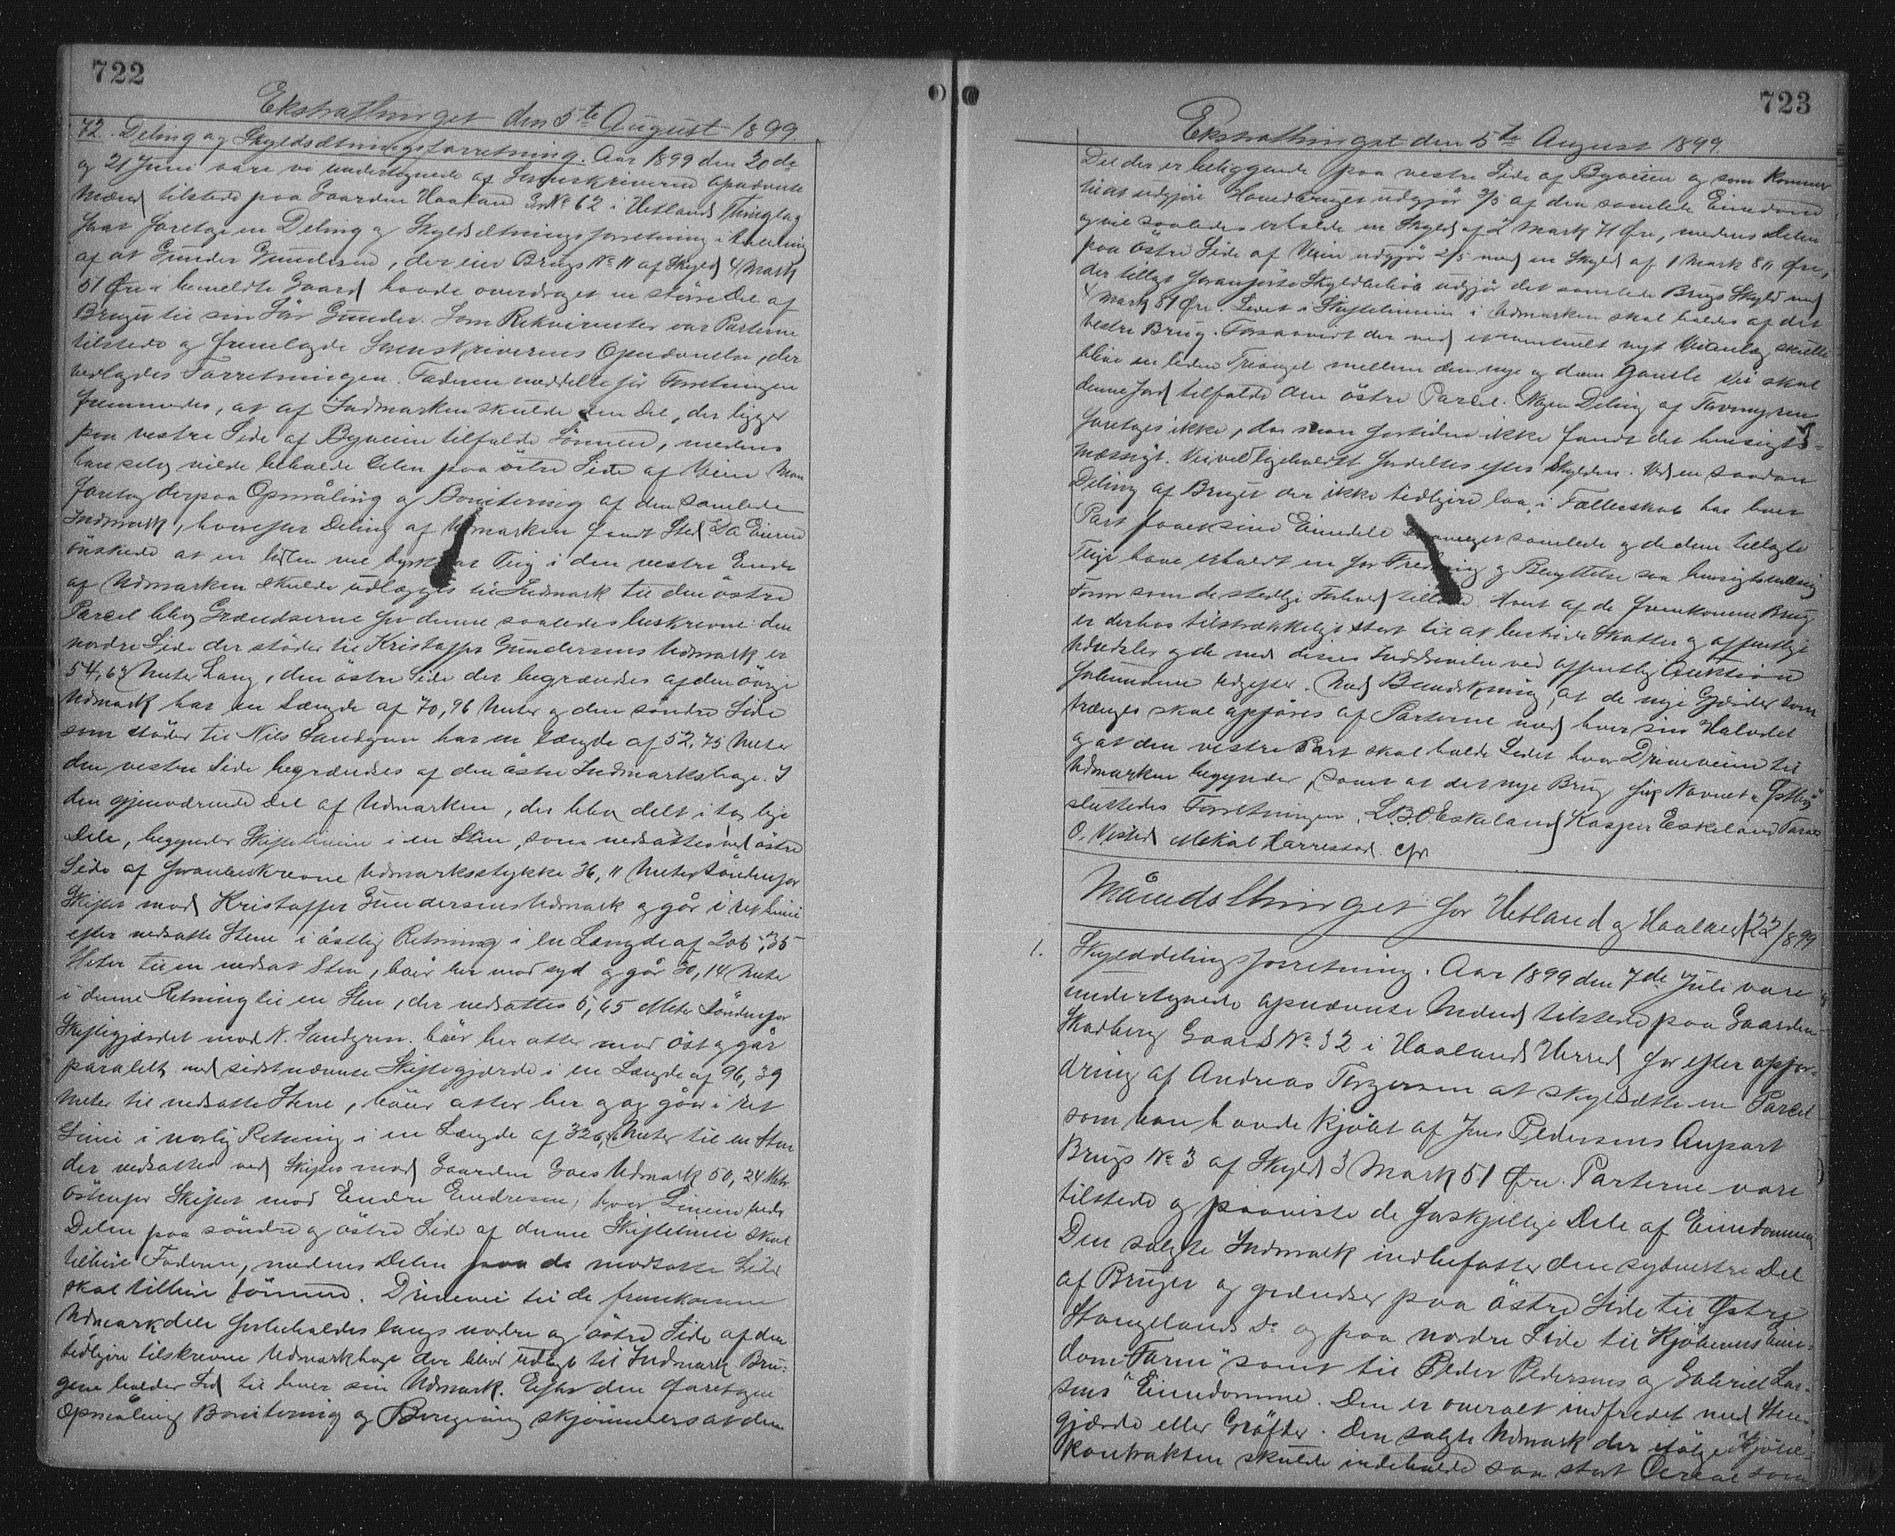 722
Ekstrathinget den 5te August 1899.
72. Deling og Skyldsætningsforretning. Aar 1899 den 20de
og 21 Juni vare vi undertegnede af Sorenskriveren opnævnte
Mænd tilstede paa Gaarden Haaland GNo 62 i Hetlands Thinglag
for at foretage en Deling og Skyldsætningsforretning i Anledning
af at Gunder Gundersen, der eier Brugs No 11 af Skyld 4 Mark
51 Øre i bemeldte Gaard havde overdraget en större Del af
Bruget til sin Sön Gunder. Som Rekvirenter var Parterne
tilstede og fremlagde Sorenskriverens Opnævnelse, der
vedlagdes Forretningen. Faderen meddelte før Forretningen
fremmedes, at af Indmarken skulde den Del, der ligger
paa vestre Side af Byveien tilfalde Sönnen, medens
han selv vilde beholde Delen paa östre Side af Veien. Man
foretog derpaa Opmåling og Bonitering af den samlede
Indmark, hvorefter Deling af Udmarken fandt Sted. Da Eieren
önskede at en liden Teig i den vestre Ende
af Udmarken skulde udlægges til Indmark til den östre
Parcel blev Grændserne for denne saaledes beskrevne: den
nordre Side der støder til Kristoffer Gundersens Udmark er
54,67 Meter Lang, den östre Side der begrændses af den övrige
Udmark har en Længde af 70,96 Meter og den søndre Side
som støder til Nils Sandgren har en længde af 52,75 Meter
den vestre Side begrændses af den östre Indmarkshage. I
den gjenværende Del af Udmarken, der blev delt i to lige
Dele, begynder Skiftelinien i en Sten, som nedsattes ved östre
Side af foranbeskrevne Udmarksstykke 36,11 Meter söndenfor
Skiftet mod Kristoffer Gundersens Udmark og går i ret Linie
efter nedsatte Stene i östlig Retning i en Længde af 206,35
Meter til en nedsat Sten, böier her mod syd og går 30,14 Meter
i denne Retning til en Sten, der nedsattes 5,65 Meter söndenfor
Skiftegjærdet mod N. Sandgren. böier her atter mod öst og går
paralelt med sidstnævnte Skiftegjærde i en Længde af 96,39
Meter til nedsatte Stene, böier atter her og går i ret
Linie i nordlig Retning i en Længde af 326, Meter til en Sten
der nedsattes ved Skiftet mod Gaarden Goes Udmark 50,24 Meter
östenfor Skiftet mod Endre Endresen, hvor Linien ender
Delen paa söndre og östre Side af denne Skiftelinie skal
tilhöre Faderen, medens Delen paa de modsatte Sider
skal tilhøre sönnen. Drivevei til de fremkomne
Udmarkdele forbeholdes langs nordre og östre Side af den
tidligere tilskrevne Udmarkhage der blev udlagt til Indmark. Bru-
gene holder Led til hver sin Udmark. Efter den foretagne
Opmåling Bonitering og Beregning skjönnes at den
723
Ekstrathinget den 5te August 1899.
Del der er beliggende paa vestre Side af Byveien og som kommer
til at udgjøre Hovedbruget udgjør 3/5 af den samlede Eiendom
og vil saaledes erholde en Skyld af 2 Mark 71 Øre, medens Delen
paa östre Side af Veien udgjør 2/5 med en Skyld af 1 Mark 80 Øre,
der tillagt foranførte Skyldbeløb udgjør det samlede Brugs Skyld med
4 Mark 51 Øre. Ledet i Skiftelinien i Udmarken skal holdes af det
vestre Brug. Forsaavidt der ved eventuelt nyt Veianlæg skulde
blive en liden Triangel mellem den nye og den gamle Vei skal
denne Jord tilfalde den östre Parcel. Nogen Deling af Torvmyren
foretoges ikke, da man fortiden ikke fandt det hensigts-
mæssigt. Veivedligeholdet fordeltes efter Skylden. Ved en saadan
Deling af Bruget der ikke tidligere laa i Fællesskab har hver
Part faaet sine Eiendele samlede og de dem tillagte
Teige have erholdt en for Fredning og Benyttelse saa hensigtsmæssig
Form som de stedlige Forhold tillade. Hvert af de fremkomne Brug
er derhos tilstrækkeligt stort til at bestride Skatter og offentlige
Udredsler og de med deres Inddrivelse ved offentlig Auktion
forbundne Udgifter. Med Bemærkning, at de nye Gjærder som
trænges skal opføres af Parterne med hver sin Halvdel
og at den vestre Part skal holde Ledet hvor Driveveien til
Udmarken begynder, samt at det nye Brug fik Navnet "Østbø"
sluttedes Forretningen. L. B. O. Eskeland Kasper Eskeland
O. Vestad Mikal Harrestad. cfr
Månedsthinget for Hetland og Haaland 22/ 899
1. Skylddelingsforretning. Aar 1899 den 7de Juli vare
undertegnede opnævnte Mænd tilstede paa Gaarden
Skadberg Gaards No. 32 i Haalands Herred for efter opfor-
dring af Andreas Torgersen at skyldsætte en Parcel
som han havde kjøbt af Jens Pedersens Anpart
Brugs No 3 af Skyld 3 Mark 51 Øre. Parterne vare
tilstede og paaviste de forskjellige Dele af Eiendommen
Den solgte Indmark indbefatter den sydvestre Del
af Bruget og grændser paa östre Side til Østre
Stangelands Do og paa nordre Side til Kjöberens Eien-
dom "Tarm" samt til Peder Pedersens og Gabriel Lar-
sens Eiendomme. Den er overalt indfredet med Sten-
gjærde eller Gröfter. Den solgte Udmark der ifölge Kjöbe-
kontrakten skulde indeholde saa stort Areal som